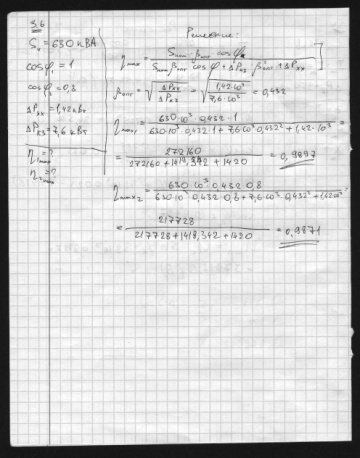 3.6
Решение:
S_н = 630 кВА
cos φ₁ = 1
cos φ₂ = 0,8
ΔP_xx = 1,42 кВт
ΔP_кз = 7,6 кВт
η_1max = ?
η_2max = ?
η_max = S_ном · β_опт · cos φ_2 / (S_ном β_опт cos φ + ΔP_кз β²_опт + ΔP_xx)
β_опт = √(ΔP_xx / ΔP_кз) = √(1,42·10³ / 7,6·10³) = 0,432
η_max1 = 630·10³ · 0,432 · 1 / (630·10³ · 0,432 · 1 + 7,6·10³ · 0,432² + 1,42·10³) =
= 272160 / (272160 + 1418,342 + 1420) = 0,9897
η_max2 = 630·10³ · 0,432 · 0,8 / (630·10³ · 0,432 · 0,8 + 7,6·10³ · 0,432² + 1,42·10³) =
= 217728 / (217728 + 1418,342 + 1420) = 0,9871